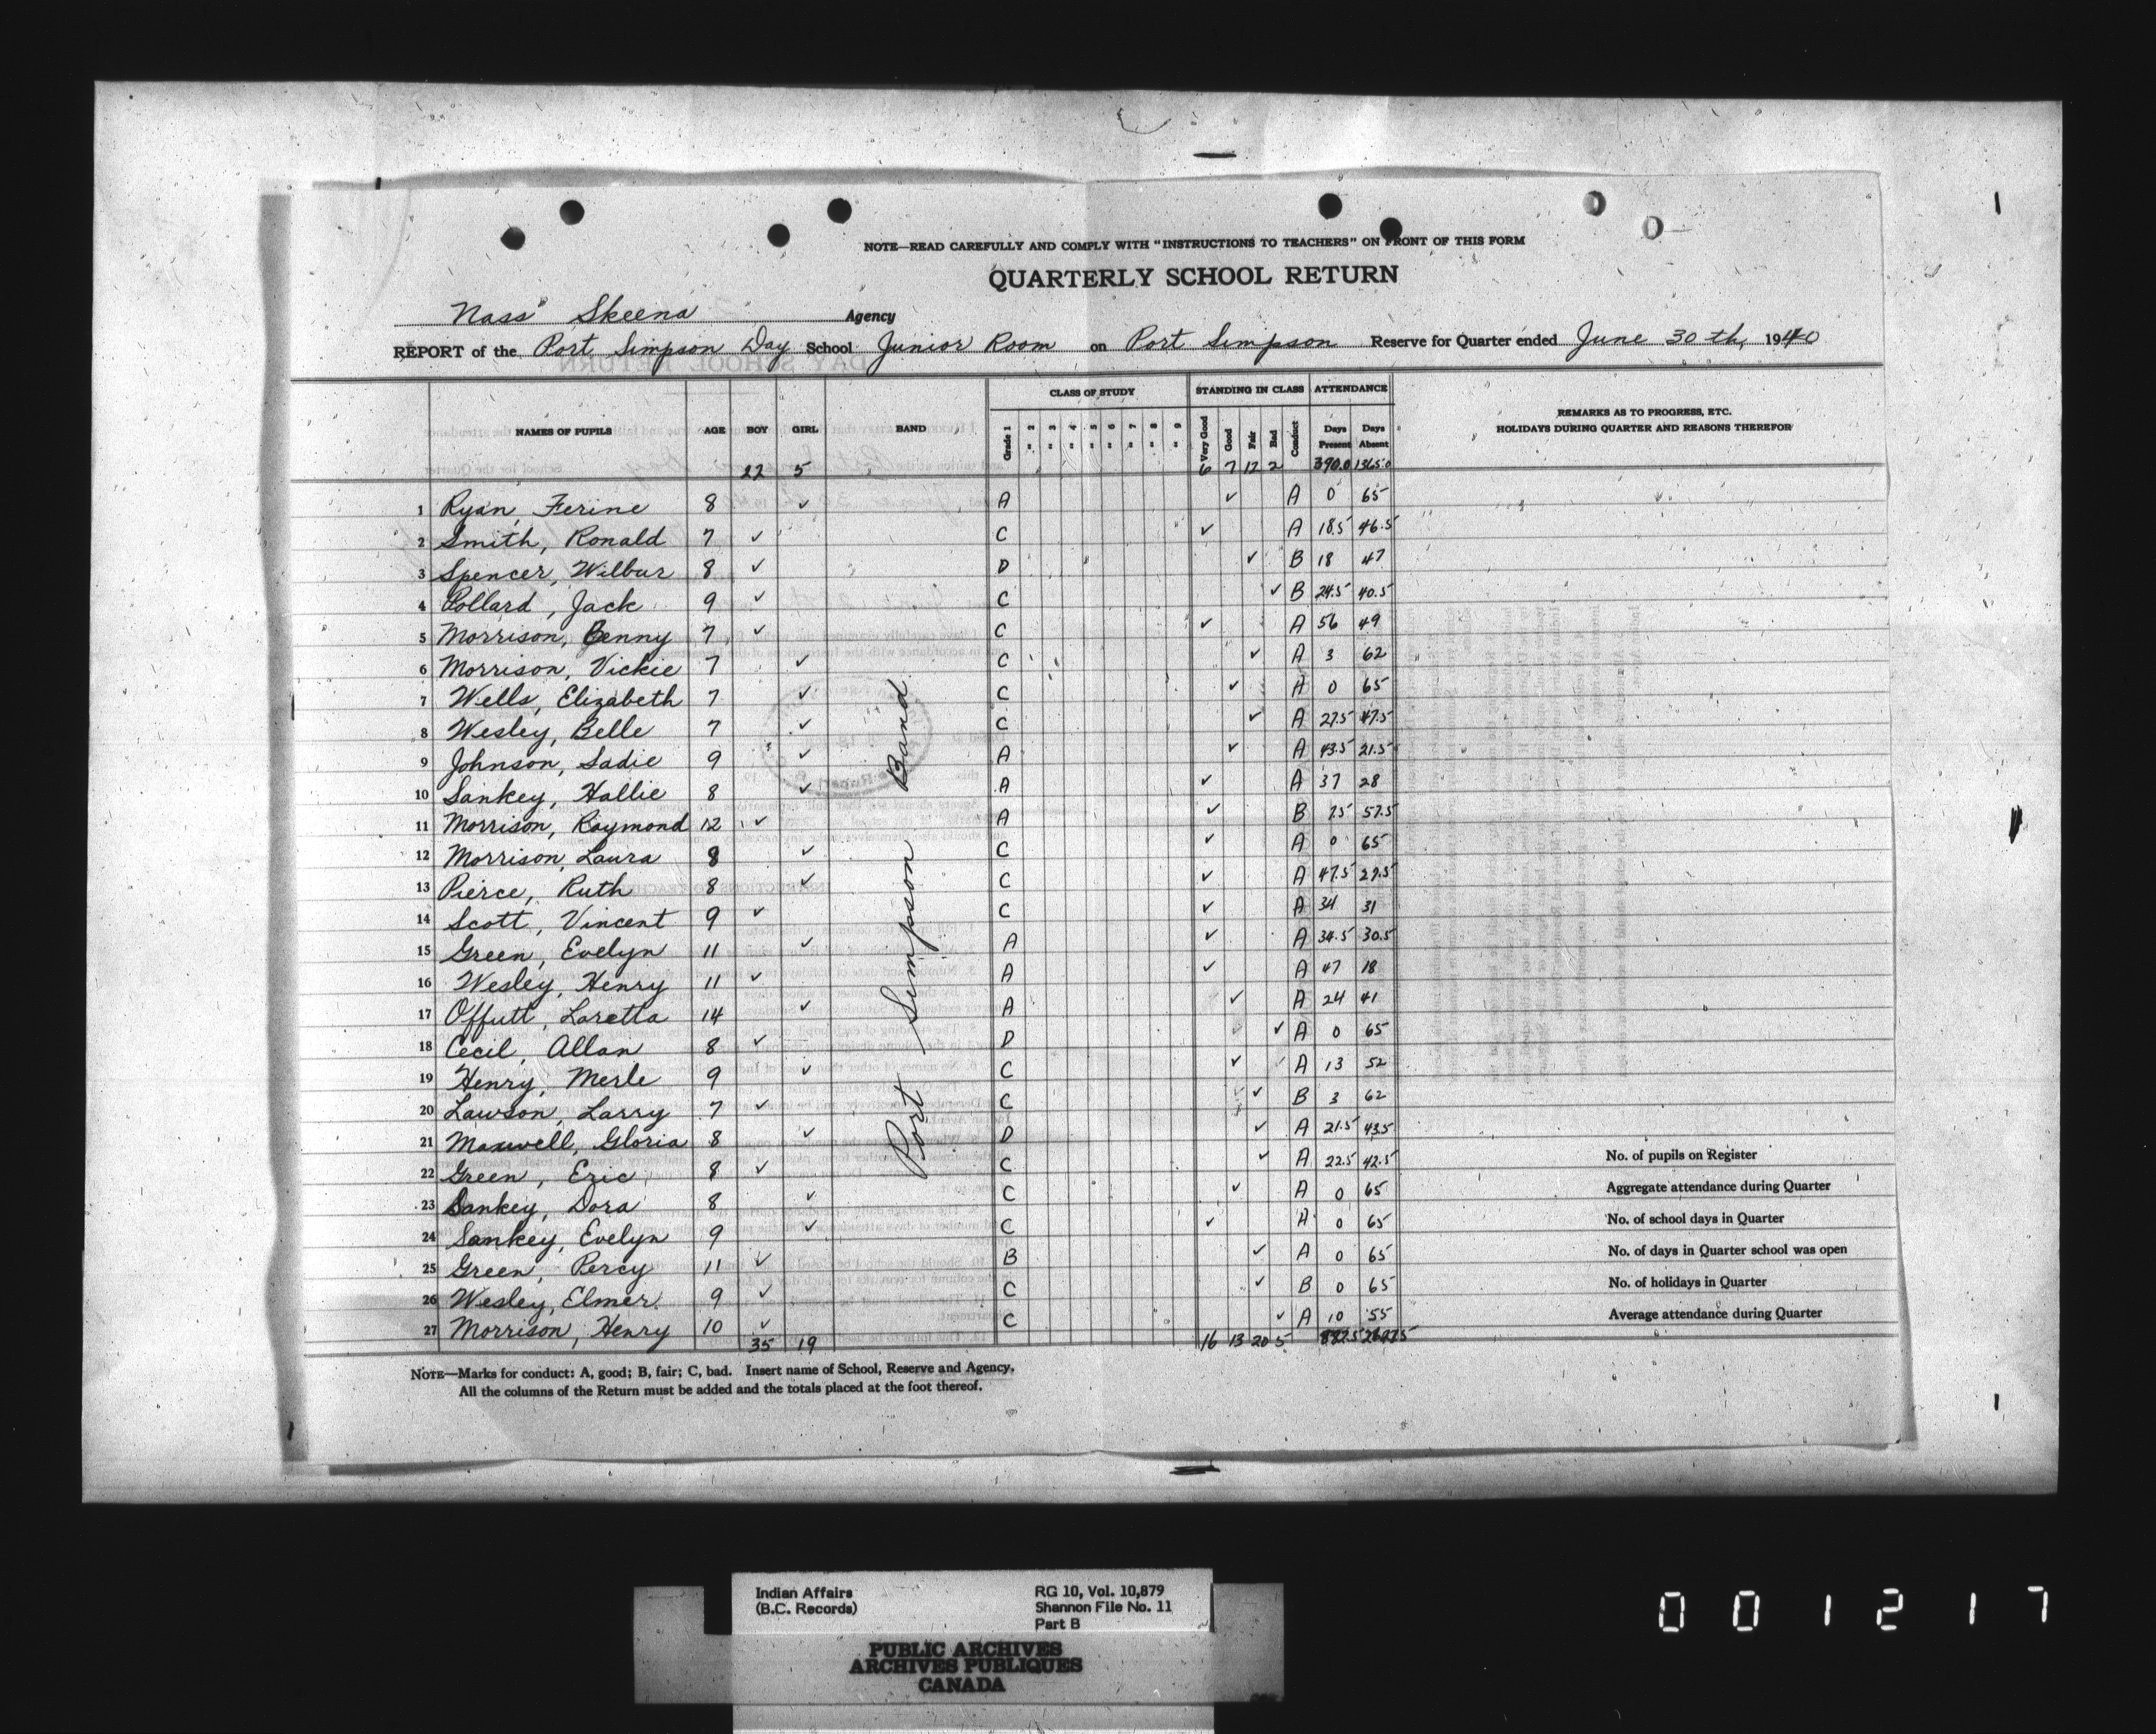 NOTE—READ CAREFULLY AND COMPLY WITH "INSTRUCTIONS TO TEACHERS" ON FRONT OF THIS FORM
QUARTERLY SCHOOL RETURN
Nass Skeena Agency
REPORT of the Port Simpson Day School Junior Room on Port Simpson Reserve for Quarter ended June 30th, 1940
CLASS OF STUDY STANDING IN CLASS ATTENDANCE
NAMES OF PUPILS AGE BOY GIRL BAND Grade 1 " 2 " 3 " 4 " 5 " 6 " 7 " 8 " 9 Very Good Good Fair Bad Conduct Days Present Days Absent REMARKS AS TO PROGRESS, ETC.
HOLIDAYS DURING QUARTER AND REASONS THEREFOR
22 5 6 7 12 2 390.0 1365.0
Port Simpson Band
1 Ryan, Ferine 8 ✓ A ✓ A 0 65
2 Smith, Ronald 7 ✓ C ✓ A 18.5 46.5
3 Spencer, Wilbur 8 ✓ D ✓ B 18 47
4 Pollard, Jack 9 ✓ C ✓ B 24.5 40.5
5 Morrison, Benny 7 ✓ C ✓ A 56 49
6 Morrison, Vickie 7 ✓ C ✓ A 3 62
7 Wells, Elizabeth 7 ✓ C ✓ A 0 65
8 Wesley, Belle 7 ✓ C ✓ A 27.5 47.5
9 Johnson, Sadie 9 ✓ A ✓ A 43.5 21.5
10 Sankey, Hallie 8 ✓ A ✓ A 37 28
11 Morrison, Raymond 12 ✓ A ✓ B 7.5 57.5
12 Morrison, Laura 8 ✓ C ✓ A 0 65
13 Pierce, Ruth 8 ✓ C ✓ A 47.5 27.5
14 Scott, Vincent 9 ✓ C ✓ A 34 31
15 Green, Evelyn 11 ✓ A ✓ A 34.5 30.5
16 Wesley, Henry 11 ✓ A ✓ A 47 18
17 Offutt, Loretta 14 ✓ A ✓ A 24 41
18 Cecil, Allan 8 ✓ D ✓ A 0 65
19 Henry, Merle 9 ✓ C ✓ A 13 52
20 Lawson, Larry 7 ✓ C ✓ B 3 62
21 Maxwell, Gloria 8 ✓ D ✓ A 21.5 43.5
22 Green, Eric 8 ✓ C ✓ A 22.5 42.5 No. of pupils on Register
23 Sankey, Dora 8 ✓ C ✓ A 0 65 Aggregate attendance during Quarter
24 Sankey, Evelyn 9 ✓ C ✓ A 0 65 No. of school days in Quarter
25 Green, Percy 11 ✓ B ✓ A 0 65 No. of days in Quarter school was open
26 Wesley, Elmer 9 ✓ C ✓ B 0 65 No. of holidays in Quarter
27 Morrison, Henry 10 ✓ C ✓ A 10 55 Average attendance during Quarter
35 19 16 13 20 5
NOTE—Marks for conduct: A, good; B, fair; C, bad. Insert name of School, Reserve and Agency.
All the columns of the Return must be added and the totals placed at the foot thereof.
Indian Affairs RG 10, Vol. 10,879
(B.C. Records) Shannon File No. 11
Part B
PUBLIC ARCHIVES
ARCHIVES PUBLIQUES
CANADA
001217